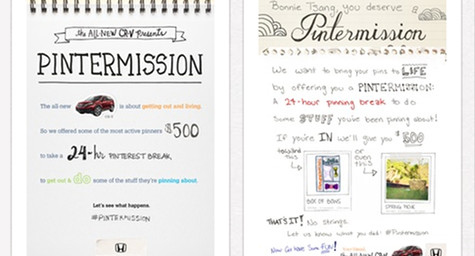 the ALL-NEW CR-V presents
PINTERMISSION
The all-new is about getting out and living.
So we offered some of the most active pinners $500
to take a 24-hr PINTEREST BREAK,
to get out & do some of the stuff they're pinning about.
Let's see what happens.
#PINTERMISSION
Bonnie Tsang, you deserve a
Pintermission
We want to bring your pins to LIFE
by offering you a PINTERMISSION:
A 24-hour pinning break to do
Some STUFF you've been pinning about!
If you're IN we'll give you $500
toward THIS
or even THIS
BOX OF BOWS
SPRING PICNIC
THAT'S IT! No strings.
Let us know what you think! #Pintermission
Now Go Have Some FUN!